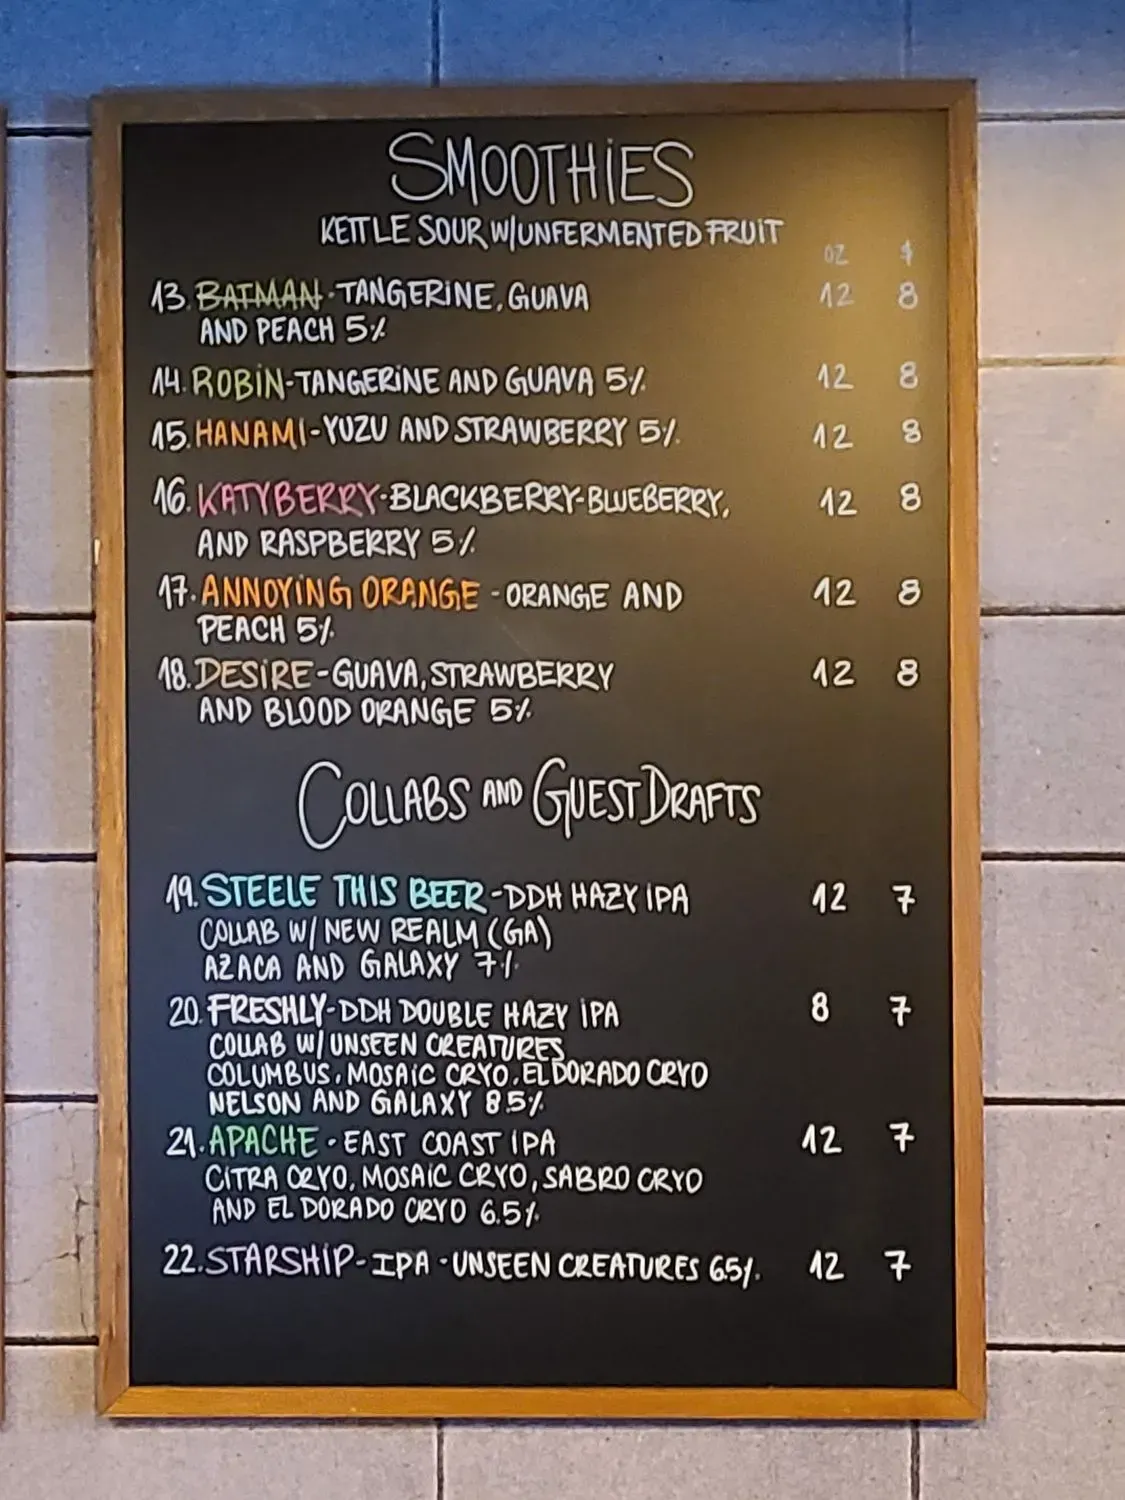 SMOOTHIES
KETTLE SOUR W/UNFERMENTED FRUIT
OZ $
13. BATMAN - TANGERINE, GUAVA 12 8
AND PEACH 5%
14. ROBIN - TANGERINE AND GUAVA 5% 12 8
15. HANAMI - YUZU AND STRAWBERRY 5% 12 8
16. KATYBERRY - BLACKBERRY-BLUEBERRY, 12 8
AND RASPBERRY 5%
17. ANNOYING ORANGE - ORANGE AND 12 8
PEACH 5%
18. DESIRE - GUAVA, STRAWBERRY 12 8
AND BLOOD ORANGE 5%
COLLABS AND GUEST DRAFTS
19. STEELE THIS BEER - DDH HAZY IPA 12 7
COLLAB W/ NEW REALM (GA)
AZACA AND GALAXY 7%
20. FRESHLY - DDH DOUBLE HAZY IPA 8 7
COLLAB W/ UNSEEN CREATURES
COLUMBUS, MOSAIC CRYO, EL DORADO CRYO
NELSON AND GALAXY 8.5%
21. APACHE - EAST COAST IPA 12 7
CITRA CRYO, MOSAIC CRYO, SABRO CRYO
AND EL DORADO CRYO 6.5%
22. STARSHIP - IPA - UNSEEN CREATURES 6.5% 12 7